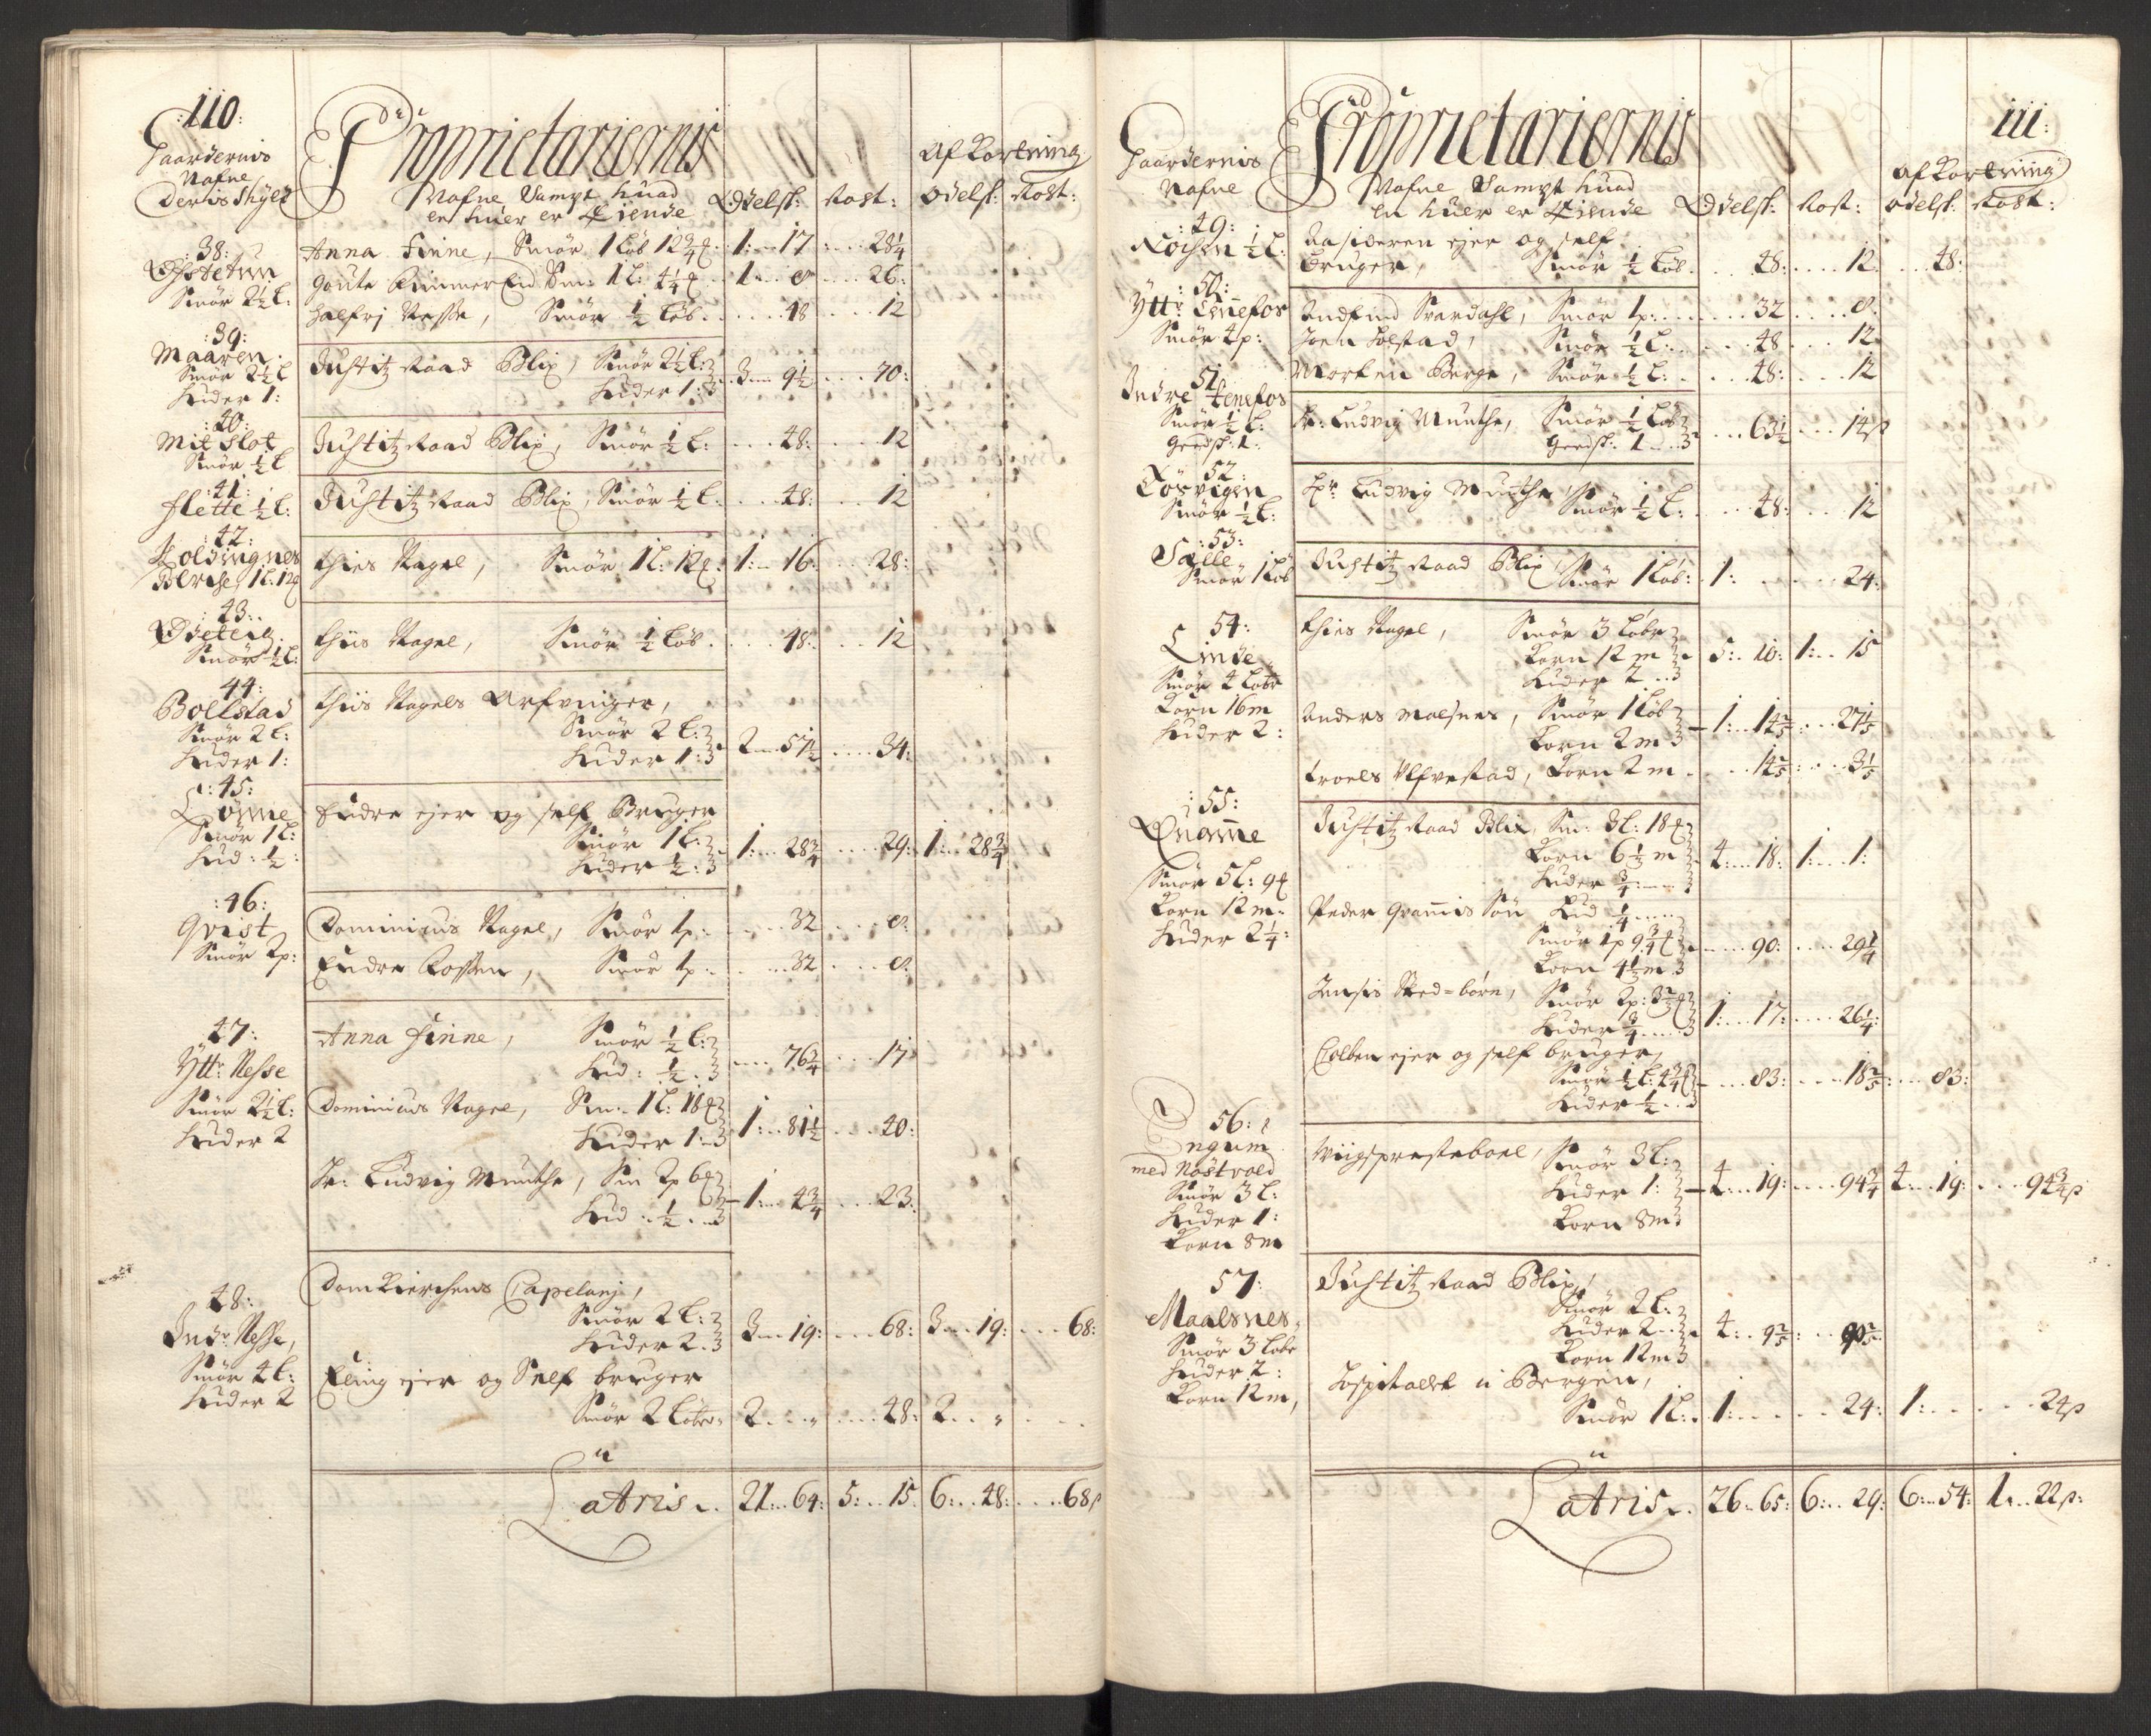 :110:
Gaardernis
Nafne
Deris Skyld
Proprietariernis
Nafne Sampt huad
en huer er Eiende
Odelsk: Rost:
Afkortning
Odelsk: Rost:
:38:
Østetun
Smør 2½ L:
Anna Finne, Smør 1 Løb 12¾ 1: 17 28¼
Goute Smør 1 L: 4¼ 1 8 26:
Halfrj Nesse, Smør ½ Løb 48 12
:39:
Maaren
Smør 2½ L
Huder 1:
Justitz Raad Blix, Smør 2½ L:
Huder 1: 3 9½ 70:
:40:
Mitslot
Smør ½ L
Justitz Raad Blix, Smør ½ L: 48: 12
:41:
Flette ½ L:
Justitz Raad Blix, Smør ½ L: 48: 12
:42:
Holdingnes
1 L: 12
Thies Nagel, Smør 1 L: 12 1: 16: 28:
:43:
Ødeteig
Smør ½ L:
Thiis Nagel, Smør ½ Løb 48: 12
44:
Bollstad
Smør 2 L:
Huder 1:
Thiis Nagels Arfvinger,
Smør 2 L:
Huder 1: 2 57½ 34:
:45:
Lønne
Smør 1 L:
Hud: ½:
Endre ejer og self Bruger
Smør 1 L:
Huder ½: 1: 28¾ 29: 1: 28¾
:46:
Qvist
Smør 2p:
Dominicus Nagel, Smør 1p: 32 8:
Endre Rossen, Smør 1p: 32 8:
47:
Ytt: Nesse
Smør 2½ L:
Huder 2
Anna Finne, Smør ½ L:
Hud: ½ 76¾ 17
Dominicus Nagel, Sm: 1 L: 18
Huder 1: 1: 81½ 40:
Hr: Ludvig Munthe, Sm 2p 6
Hud: ½ 1: 43¾ 23:
48:
Indr: Nesse,
Smør 4 L:
Huder 2
Domkierchens Capelanj,
Smør 2 L:
Huder 2. 3 19: 68: 3 19: 68:
Eling ejer og Self bruger
Smør 2 Løber 2 48: 2
Latris 21: 64: 5: 15 6: 48: 68ß
111:
Gaardernis
Nafne
Proprietariernis
Nafne Sampt huad
en huer er Eiende
Odelsk: Rost:
Afkortning
Odelsk: Rost:
:49:
½ L:
ejer og self
Bruger, Smør ½ Løb 48: 12 48:
:50:
Ytt: Tennefos
Smør 4p:
Svardahl, Smør 1p: 32 8:
Joen Holstad, Smør ½ L: 48 12
Morten Berge, Smør ½ L: 48: 12
51
Indre Tenefos
Smør ½ L:
Geedsk: 1:
Hr: Ludvig Munthe, Smør ½ Løb
Geedsk: 1 63½ 14ß
:52:
Smør ½ L:
Hr: Ludvig Munthe Smør ½ L: 48: 12
:53:
Sælle
Smør 1 Løb
Justitz Raad Blix, Smør 1 Løb: 1: 24:
54:
Linde
Smør 4 Løbr
Korn 16 m
Huder 2:
Thies Nagel, Smør 3 Løbr
Korn 12 m
Huder 2 5: 10: 1: 15
Anders Malsnes, Smør 1 Løb
Korn 2 m 1: 14⅖ 27⅕
Troels Ulfvestad, Korn 2 m 14⅖ 3⅕
:55:
Qvamme
Smør 5 L: 9
Korn 12 m:
Huder 2¼:
Justitz Raad Blix, Sm: 3 L: 18
Korn 6½ m
Huder ¾ 4: 18: 1: 1:
Peder Gramis Søn Hud ¼
Smør 1p 9¾
Korn 4½ m 90: 29¼
Jensis Sted-børn, Smør 2p: 3
Huder ¾ 1: 17: 26¼:
Colben ejer og self bruger,
Smør ½ L: 4¾
Huder ½ 83: 18⅖: 83:
56:
Engum
med Nøstvold
Smør 3 L:
Huder 1:
Korn 8 m
Wigsprestebol, Smør 3 L:
Huder 1:
Korn 8 m 4: 19: 94¾ 4: 19: 94¾ß
57:
Maalsnes
Smør 3 Løbr
Huder 2:
Korn 12 m,
Justitz Raad Blix,
Smør 2 L:
Huder 2
Korn 12 m 4: 9⅖: 90⅖
Hospitalet i Bergen,
Smør 1 L: 1: 24: 1: 24ß
Latris 26 65: 6: 29: 6: 54: 1 22ß: